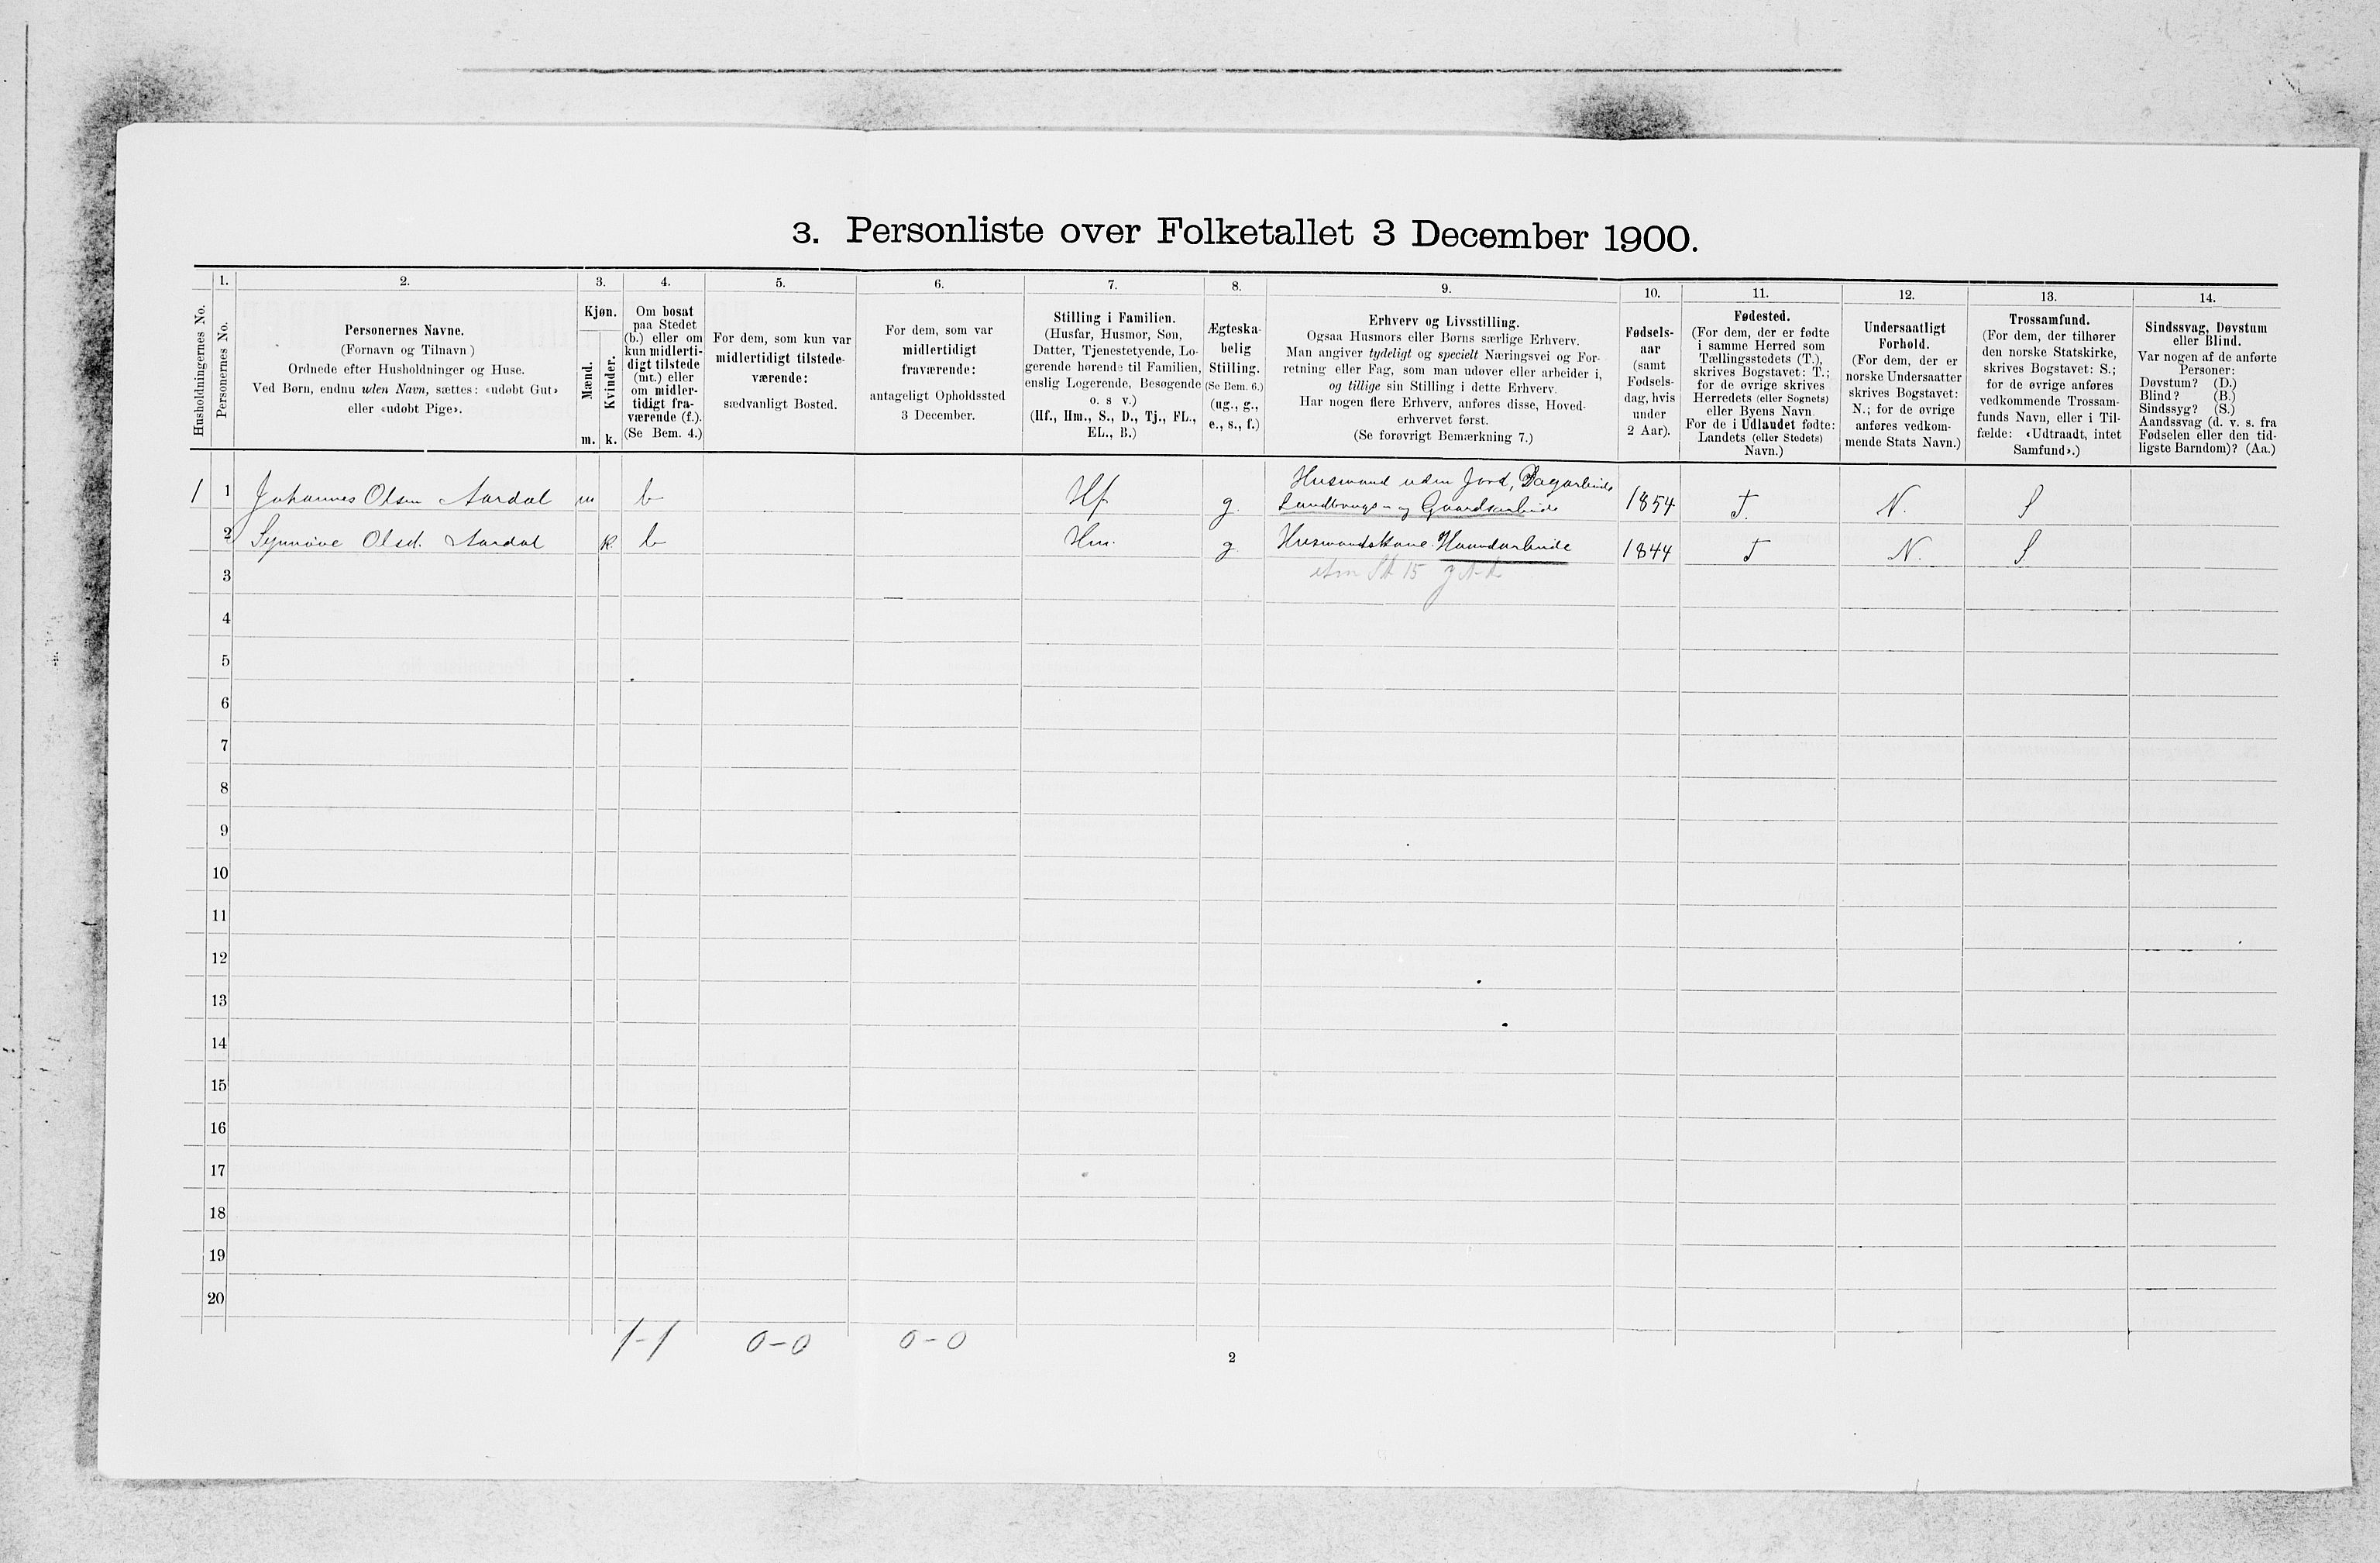 3. Personliste over Folketallet 3 December 1900.
Husholdningernes No.
1.
Personernes No.
2.
Personernes Navne.
(Fornavn og Tilnavn)
Ordnede efter Husholdninger og Huse.
Ved Børn, endnu uden Navn, sættes: «udøbt Gut»
eller «udøbt Pige».
3.
Kjøn.
Mænd.
m.
Kvinder.
k.
4.
Om bosat
paa Stedet
(b.) eller om
kun midlerti-
digt tilstede
(mt.) eller
om midler-
tidigt fra-
værende (f.).
(Se Bem. 4.)
5.
For dem, som kun var
midlertidigt tilstede-
værende:
sædvanligt Bosted.
6.
For dem, som var
midlertidigt
fraværende:
antageligt Opholdssted
3 December.
7.
Stilling i Familien.
(Husfar, Husmor, Søn,
Datter, Tjenestetyende, Lo-
gerende hørende til Familien,
enslig Logerende, Besøgende
o. s. v.)
(Hf., Hm., S., D., Tj., FL.,
EL., B.)
8.
Ægteska-
belig
Stilling.
(Se Bem. 6.)
(ug., g.,
e., s., f.)
9.
Erhverv og Livsstilling.
Ogsaa Husmors eller Børns særlige Erhverv.
Man angiver tydeligt og specielt Næringsvei og For-
retning eller Fag, som man udøver eller arbeider i,
og tillige sin Stilling i dette Erhverv.
Har nogen flere Erhverv, anføres disse, Hoved-
erhvervet først.
(Se forøvrigt Bemærkning 7.)
10.
Fødsels-
aar
(samt
Fødsels-
dag, hvis
under
2 Aar).
11.
Fødested.
(For dem, der er fødte
i samme Herred som
Tællingsstedets (T.),
skrives Bogstavet: T.;
for de øvrige skrives
Herredets (eller Sognets)
eller Byens Navn.
For de i Udlandet fødte:
Landets (eller Stedets)
Navn.)
12.
Undersaatligt
Forhold.
(For dem, der er
norske Undersaatter
skrives Bogstavet:
N.; for de øvrige
anføres vedkom-
mende Stats Navn.)
13.
Trossamfund.
(For dem, der tilhører
den norske Statskirke,
skrives Bogstavet: S.;
for de øvrige anføres
vedkommende Trossam-
funds Navn, eller i Til-
fælde: «Udtraadt, intet
Samfund».)
14.
Sindssvag, Døvstum
eller Blind.
Var nogen af de anførte
Personer:
Døvstum? (D.)
Blind? (B.)
Sindssyg? (S.)
Aandssvag (d. v. s. fra
Fødselen eller den tid-
ligste Barndom)? (Aa.)
1 1 Johannes Olsen Aardal m b Hf g. Husmand uden Jord, Dagarbeide
Landbrugs- og Gaardsarbeide 1854 T. N. S
2 Synnøve Olsd. Aardal k b Hm. g. Husmandskone. Haandarbeide 1844 T N. S
3
4
5
6
7
8
9
10
11
12
13
14
15
16
17
18
19
20
1-1 0-0 0-0
2